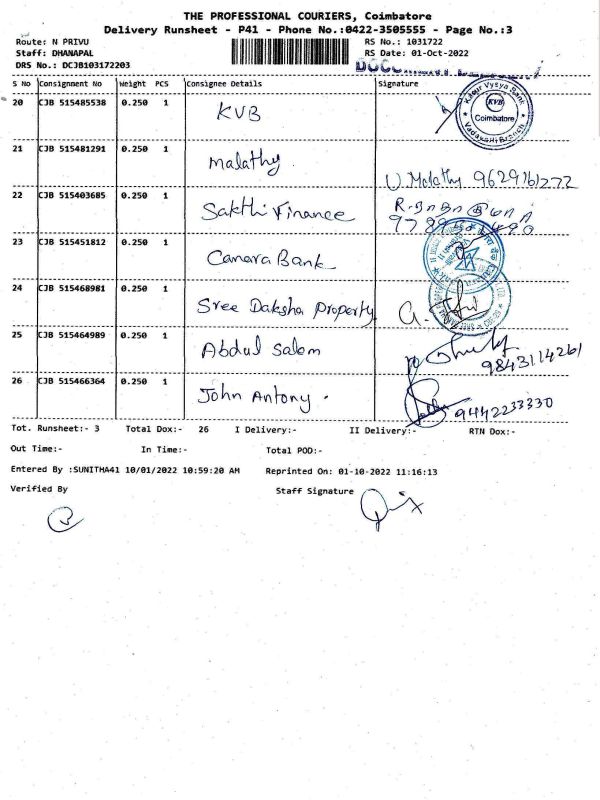 THE PROFESSIONAL COURIERS, Coimbatore
Delivery Runsheet - P41 - Phone No.:0422-3505555 - Page No.:3
Route: N PRIVU
RS No.: 1031722
Staff: DHANAPAL
RS Date: 01-Oct-2022
DRS No.: DCJB103172203
S No Consignment No Weight PCS Consignee Details Signature
20 CJB 515485538 0.250 1 KVB
Karur Vysya Bank
KVB
Coimbatore
Vadavalli Branch
21 CJB 515481291 0.250 1 Malathy
U. Malathy 9629161272
22 CJB 515403685 0.250 1 Sakthi Finance
23 CJB 515451812 0.250 1 Canara Bank
24 CJB 515468981 0.250 1 Sree Daksha Property
25 CJB 515464989 0.250 1 Abdul Salem
9843114261
26 CJB 515466364 0.250 1 John Antony.
9442233330
Tot. Runsheet:- 3 Total Dox:- 26 I Delivery:- II Delivery:- RTN Dox:-
Out Time:- In Time:- Total POD:-
Entered By :SUNITHA41 10/01/2022 10:59:20 AM Reprinted On: 01-10-2022 11:16:13
Verified By Staff Signature